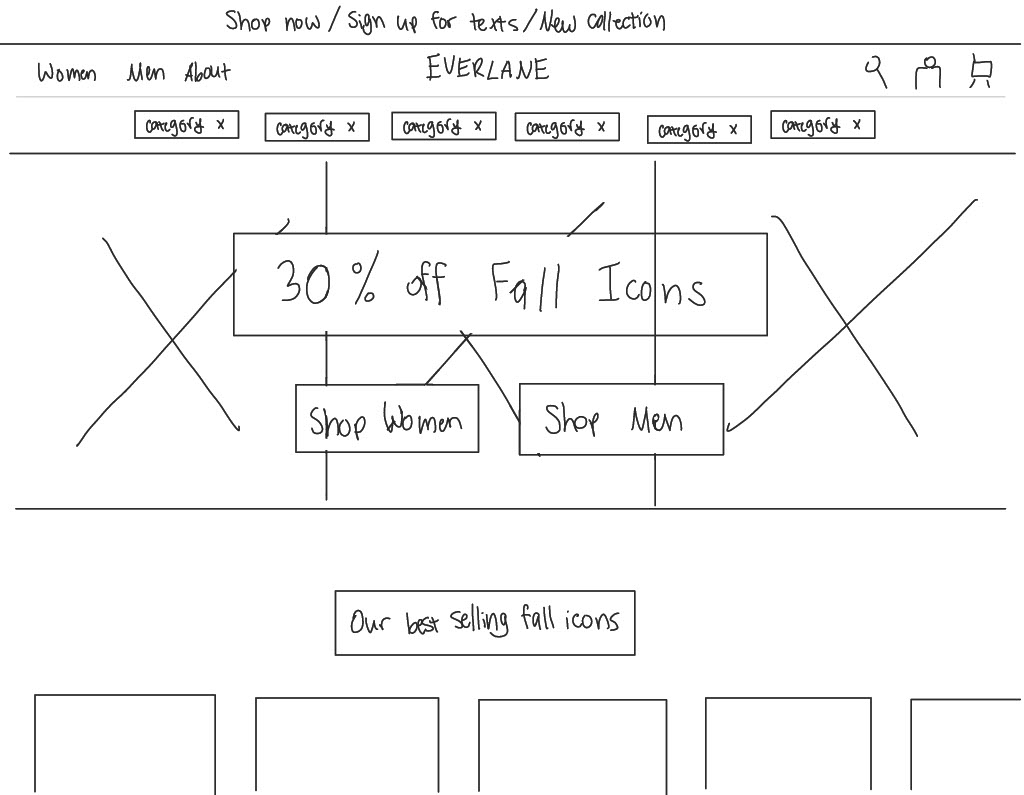 Shop now / Sign up for texts / New collection
Women Men About EVERLANE
category x category x category x category x category x category x
30 % off Fall Icons
Shop Women Shop Men
Our best selling fall icons